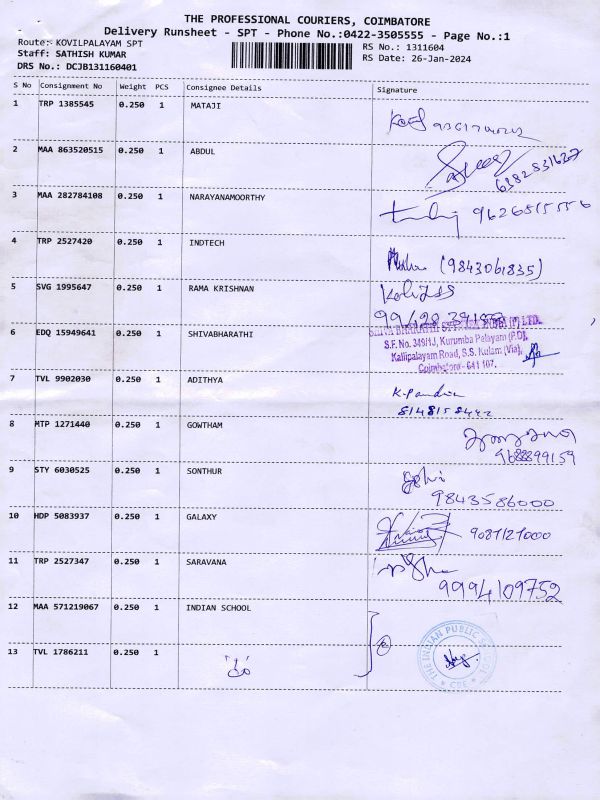 THE PROFESSIONAL COURIERS, COIMBATORE
Delivery Runsheet - SPT - Phone No.:0422-3505555 - Page No.:1
Route: KOVILPALAYAM SPT
Staff: SATHISH KUMAR
DRS No.: DCJB131160401
RS No.: 1311604
RS Date: 26-Jan-2024
S No Consignment No Weight PCS Consignee Details Signature
1 TRP 1385545 0.250 1 MATAJI
2 MAA 863520515 0.250 1 ABDUL
6382831627
3 MAA 282784108 0.250 1 NARAYANAMOORTHY
9626815556
4 TRP 2527420 0.250 1 INDTECH
(9843061835)
5 SVG 1995647 0.250 1 RAMA KRISHNAN
6 EDQ 15949641 0.250 1 SHIVABHARATHI
S.F. No. 349/1J, Kurumba Palayam (P.O),
Kallipalayam Road, S.S. Kulam (Via),
Coimbatore - 641 107.
7 TVL 9902030 0.250 1 ADITHYA
K. Pandia
8148158422
8 MTP 1271440 0.250 1 GOWTHAM
9688899159
9 STY 6030525 0.250 1 SONTHUR
9843586000
10 HDP 5083937 0.250 1 GALAXY
9087127000
11 TRP 2527347 0.250 1 SARAVANA
9994109752
12 MAA 571219067 0.250 1 INDIAN SCHOOL
THE INDIAN PUBLIC SCHOOL
CBE
13 TVL 1786211 0.250 1